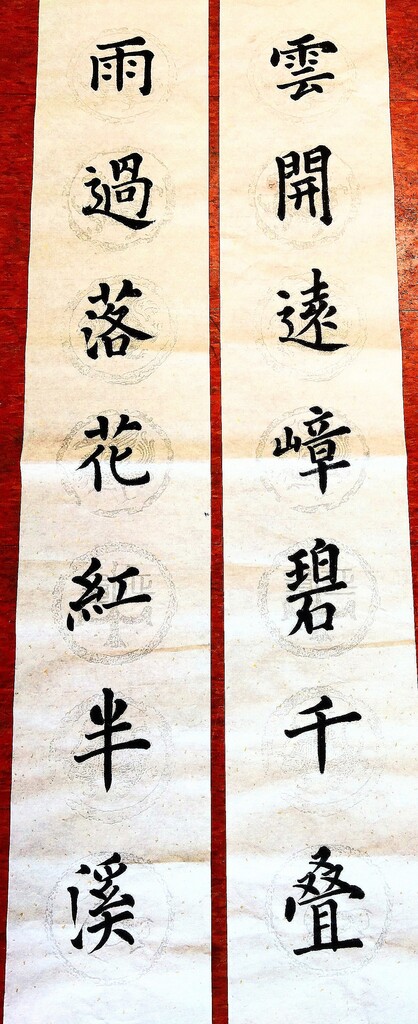 雲開遠嶂碧千叠
雨過落花紅半溪